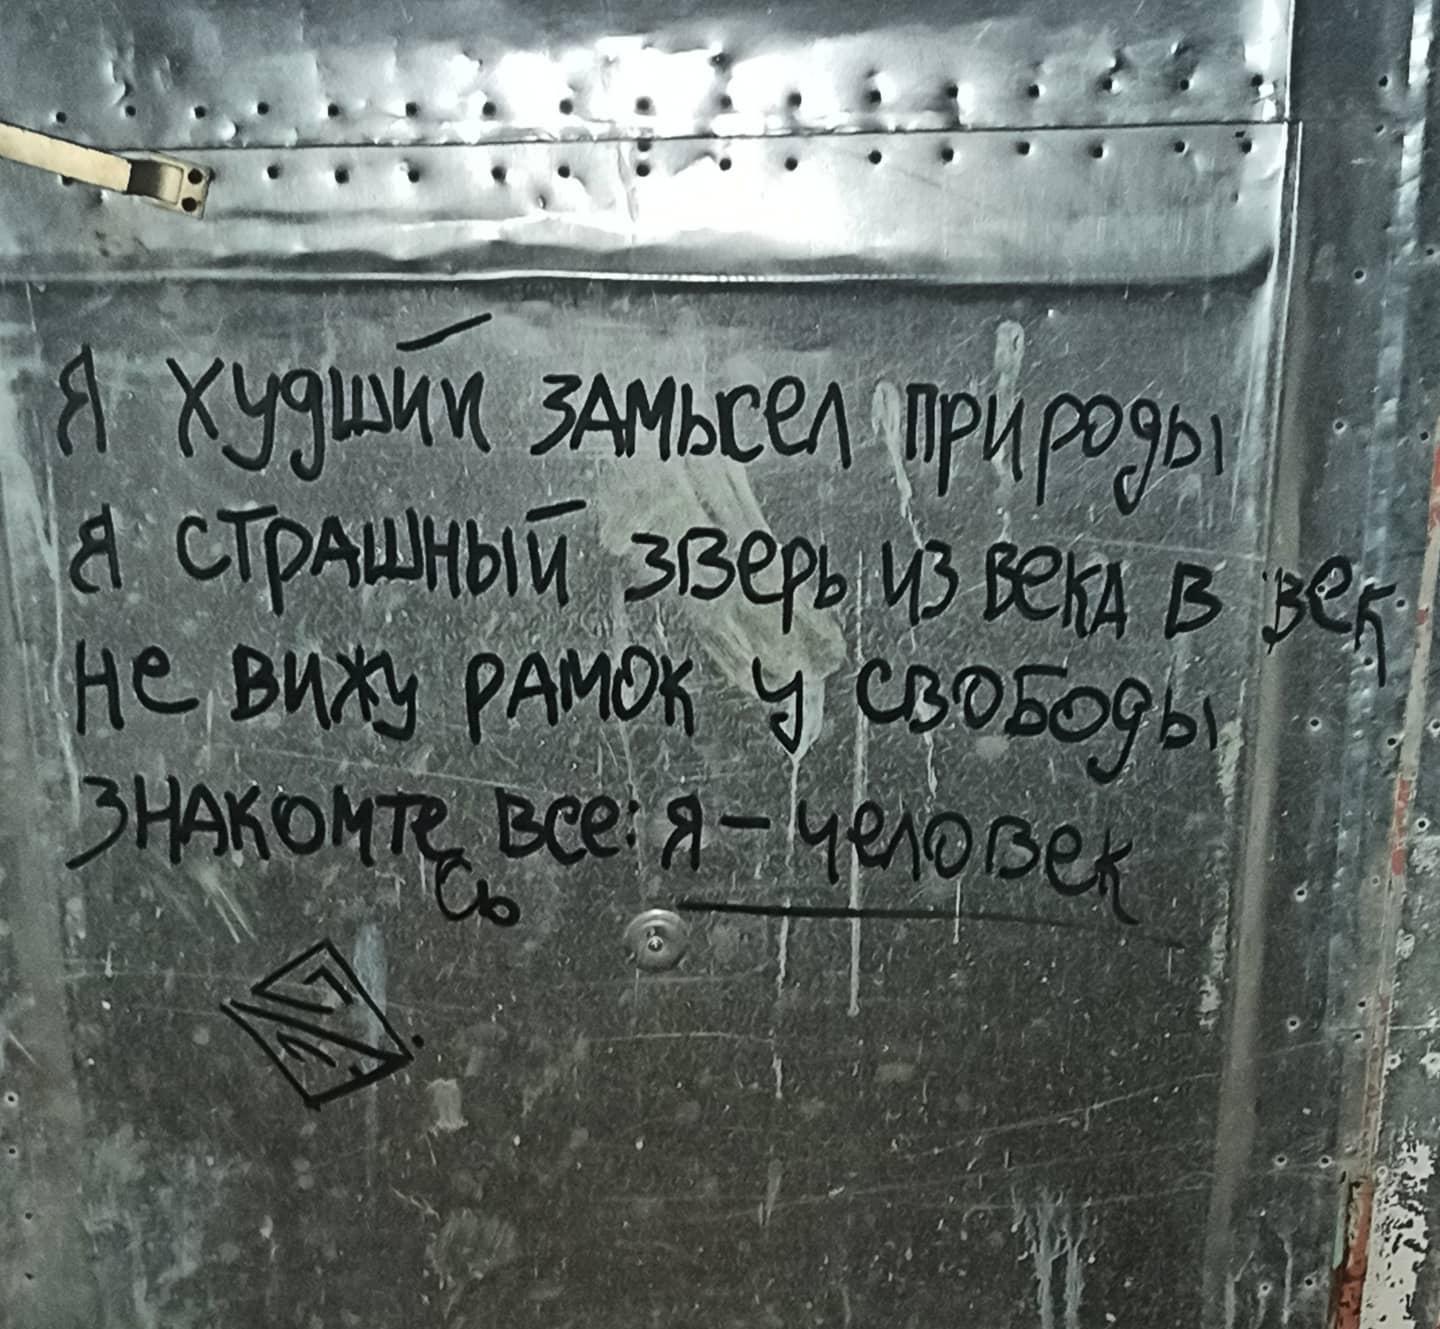 Я худший замысел природы
Я страшный зверь из века в век
Не вижу рамок у свободы
Знакомтесь все: я - человек